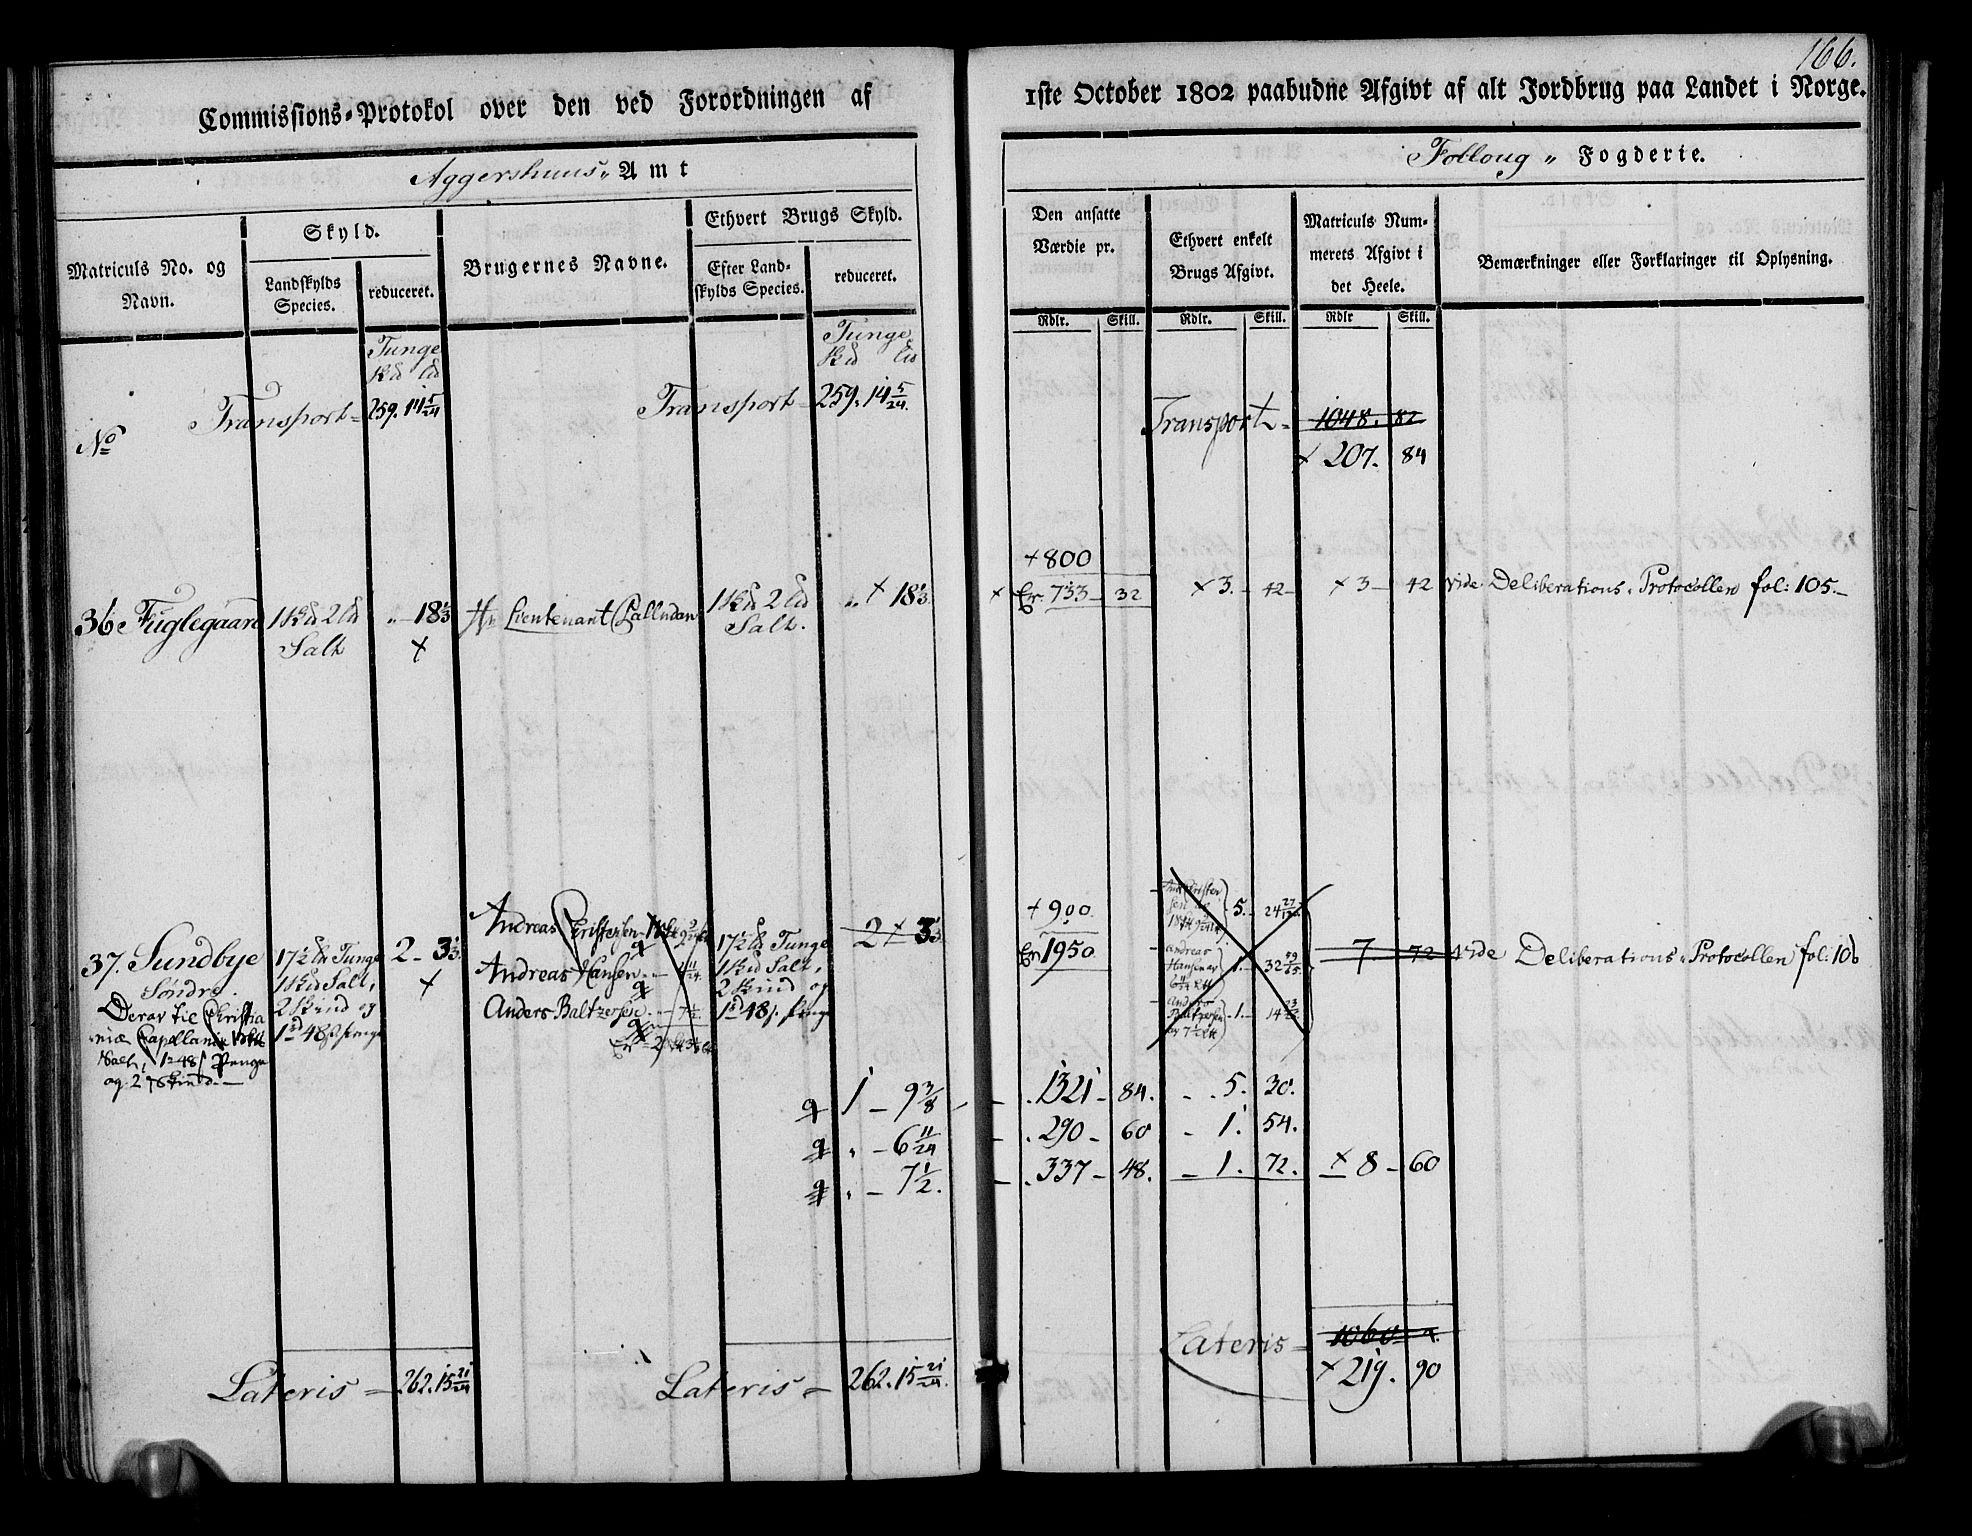 166.
Commissions-Protokol over den ved Forordningen af
1ste October 1802 paabudne Afgivt af alt Jordbrug paa Landet i Norge.
Aggershuus Amt
Folloug Fogderie.
Matriculs No. og
Navn.
Skyld.
Landskylds
Species.
reduceret.
Brugernes Navne.
Ethvert Brugs Skyld.
Efter Land-
skylds Species.
reduceret.
Den ansatte
Værdie pr.
Ethvert enkelt
Brugs Afgivt.
Matriculs Num-
merets Afgivt i
det Heele.
Bemærkninger eller Forklaringer til Oplysning.
Rdlr. Skill. Rdlr. Skill. Rdlr Skill.
Tunge
Tunge
Transport = 259. 14 5/24
Transport = 259. 14 5/24.
Transport = 1048. 82
× 207. 84
No
+ 800
36 Fuglegaard 1 2 Salt " 18 1/3 ×
Hr Lieutenant Calludan 1 2 Salt. " × 18 1/3
× Er 733 - 32 × 3. - 42 - × 3 - 42 vide Deliberations Protocollen fol: 105.
37. Sundbye
Søndre.
17 1/2 Tunge
1 Salt,
2 Skind og
2 - 3 1/3 ×
Deraf til Christia
niæ Capellanie
Salt, 48 Penge
og 2 Skind.
Andreas Christensen
Andreas Hansen
Anders Baltzersen
17 1/2 Tunge
1 Salt,
2 Skind og
2 × 3 1/3
+ 900.
Er 1950
5. 24
Andreas
Hansen
1. 32
Baltzersen
1. 14
7 - 72 vide Deliberations Protocollen fol: 106
1 - 9 3/8 - 1321 - 84. 5. 30.
" - 6 11/24 290 - 60 - 1. 54.
" - 7 1/2. 337 - 48. - 1. 72. × 8 - 60
Lateris = 262. 15 21/24
Lateris = 262. 15 21/24.
Lateris = 1060
× 219. 90